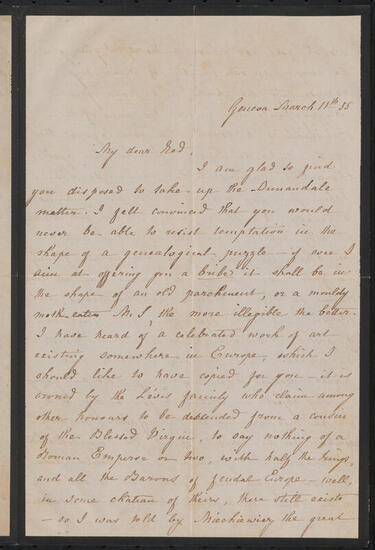 Geneva March 11th 55
My dear Ned.
I am glad to find
you disposed to take up the Dunandale
matter. I felt convinced that you would
never be able to resist temptation in the
shape of a genealogical puzzle - if ever I
aim at offering you a bribe it shall be in
the shape of an old parchment, or a mouldy
moth eaten M.S the more illegible the better.
I have heard of a celebrated work of art
existing somewhere in Europe, which I
should like to have copied for you - it is
owned by the Lévis family who claim among
other honours to be descended from a cousin
of the Blessed Virgin, to say nothing of a
Roman Emperor or two, with half the Kings,
and all the Barons of feudal Europe - well,
in some chateau of theirs, there still exists
- so I was told by Mickiewicz the great